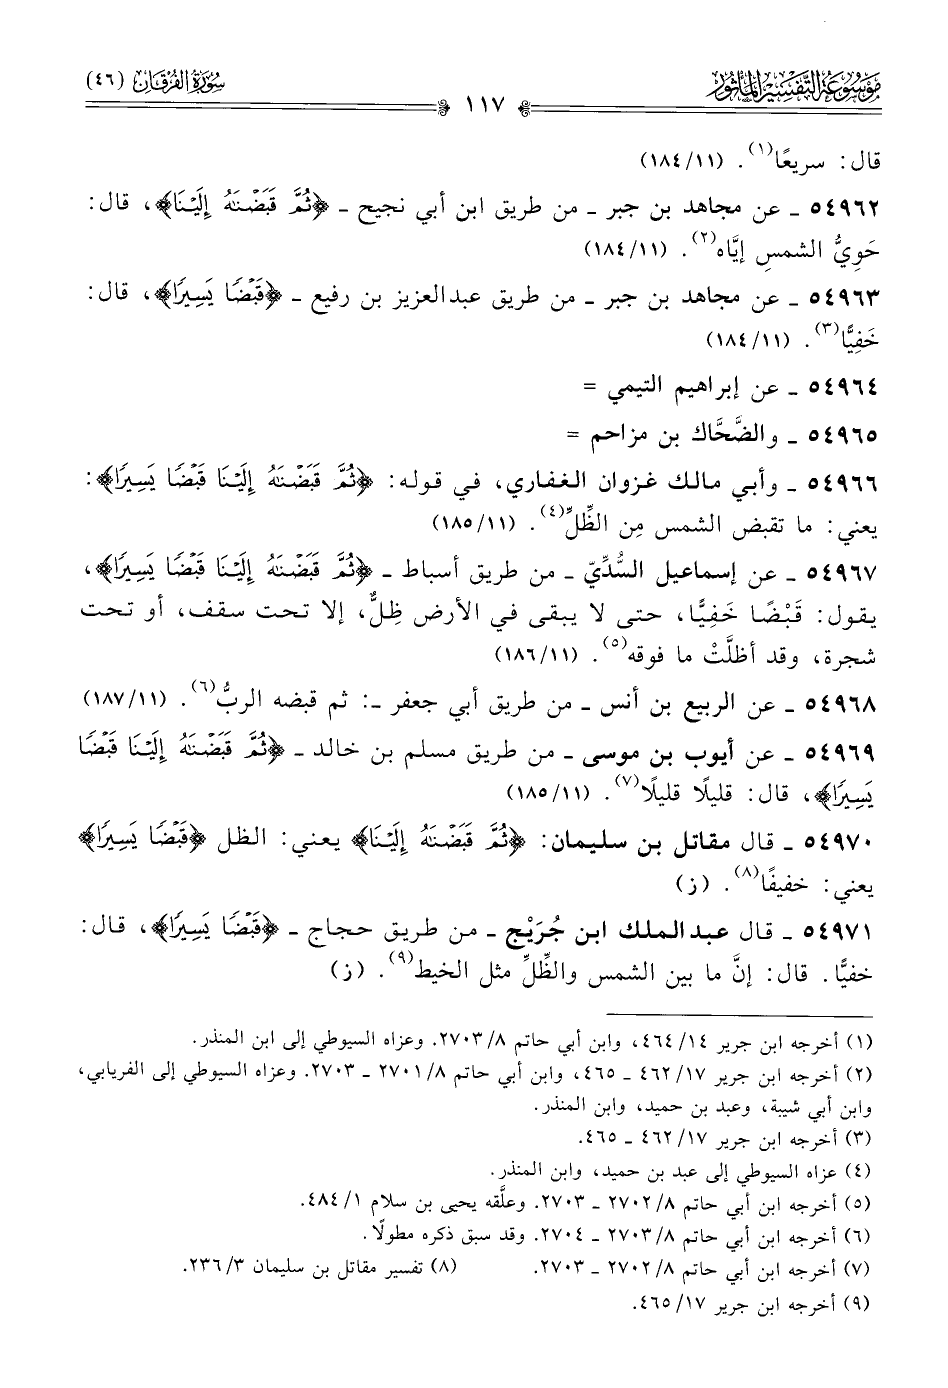 موسوعة التفسير المأثور
١١٧
سورة الفرقان (٤٦)
قال: سريعًا(١). (١٨٤/١١)
٥٤٩٦٢ ـ عن مجاهد بن جبر ـ من طريق ابن أبي نجيح ـ ﴿ثُمَّ قَبَضْنَٰهُ إِلَيْنَا﴾، قال:
حَوِيُّ الشمسِ إيَّاه(٢). (١٨٤/١١)
٥٤٩٦٣ ـ عن مجاهد بن جبر ـ من طريق عبدالعزيز بن رفيع ـ ﴿قَبْضًا يَسِيرًا﴾، قال:
خَفِيًّا(٣). (١٨٤/١١)
٥٤٩٦٤ ـ عن إبراهيم التيمي =
٥٤٩٦٥ ـ والضَّحَّاك بن مزاحم =
٥٤٩٦٦ ـ وأبي مالك غزوان الغفاري، في قوله: ﴿ثُمَّ قَبَضْنَٰهُ إِلَيْنَا قَبْضًا يَسِيرًا﴾:
يعني: ما تقبض الشمس مِن الظِّلِّ(٤). (١٨٥/١١)
٥٤٩٦٧ ـ عن إسماعيل السُّدِّيّ ـ من طريق أسباط ـ ﴿ثُمَّ قَبَضْنَٰهُ إِلَيْنَا قَبْضًا يَسِيرًا﴾،
يقول: قَبْضًا خَفِيًّا، حتى لا يبقى في الأرض ظِلٌّ، إلا تحت سقف، أو تحت
شجرة، وقد أظلَّتْ ما فوقه(٥). (١٨٦/١١)
٥٤٩٦٨ ـ عن الربيع بن أنس ـ من طريق أبي جعفر ـ: ثم قبضه الربُّ(٦). (١٨٧/١١)
٥٤٩٦٩ ـ عن أيوب بن موسى ـ من طريق مسلم بن خالد ـ ﴿ثُمَّ قَبَضْنَٰهُ إِلَيْنَا قَبْضًا
يَسِيرًا﴾، قال: قليلًا قليلًا(٧). (١٨٥/١١)
٥٤٩٧٠ ـ قال مقاتل بن سليمان: ﴿ثُمَّ قَبَضْنَٰهُ إِلَيْنَا﴾ يعني: الظل ﴿قَبْضًا يَسِيرًا﴾
يعني: خفيفًا(٨). (ز)
٥٤٩٧١ ـ قال عبدالملك ابن جُرَيْج ـ من طريق حجاج ـ ﴿قَبْضًا يَسِيرًا﴾، قال:
خفيًّا. قال: إنَّ ما بين الشمس والظِّلِّ مثل الخيط(٩). (ز)
(١) أخرجه ابن جرير ١٤/ ٤٦٤، وابن أبي حاتم ٨/ ٢٧٠٣. وعزاه السيوطي إلى ابن المنذر.
(٢) أخرجه ابن جرير ١٧/ ٤٦٢ ـ ٤٦٥، وابن أبي حاتم ٨/ ٢٧٠١ ـ ٢٧٠٣. وعزاه السيوطي إلى الفريابي،
وابن أبي شيبة، وعبد بن حميد، وابن المنذر.
(٣) أخرجه ابن جرير ١٧/ ٤٦٢ ـ ٤٦٥.
(٤) عزاه السيوطي إلى عبد بن حميد، وابن المنذر.
(٥) أخرجه ابن أبي حاتم ٨/ ٢٧٠٢ ـ ٢٧٠٣. وعلَّقه يحيى بن سلام ١/ ٤٨٤.
(٦) أخرجه ابن أبي حاتم ٨/ ٢٧٠٣ ـ ٢٧٠٤. وقد سبق ذكره مطولًا.
(٧) أخرجه ابن أبي حاتم ٨/ ٢٧٠٢ ـ ٢٧٠٣. (٨) تفسير مقاتل بن سليمان ٣/ ٢٣٦.
(٩) أخرجه ابن جرير ١٧/ ٤٦٥.